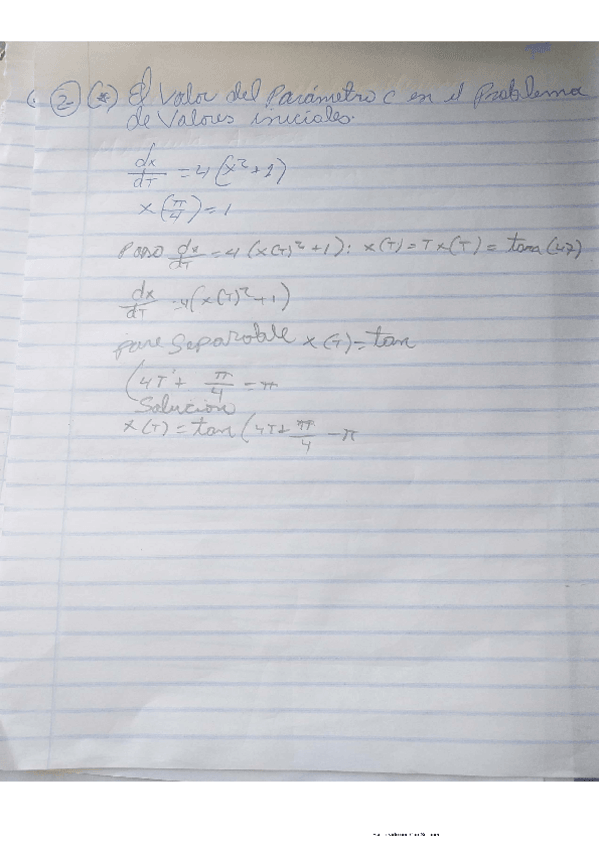 2 (*) El Valor del Parámetro c en el Problema
de Valores iniciales.
dx/dT = 4(x²+1)
x(π/4)=1
Paso dx/dT = 4(x(T)²+1): x(T)=Tx(T)=tan(4T)
dx/dT = 4(x(T)²+1)
Separable x(T)=tan
(4T+ π/4 = π
Solución
x(T)=tan(4T+π/4 -π